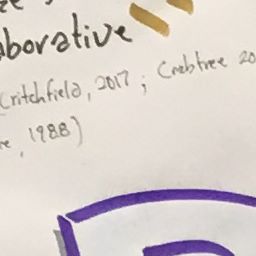 aborative
Critchfield, 2017; Crabtree 20
, 1988)